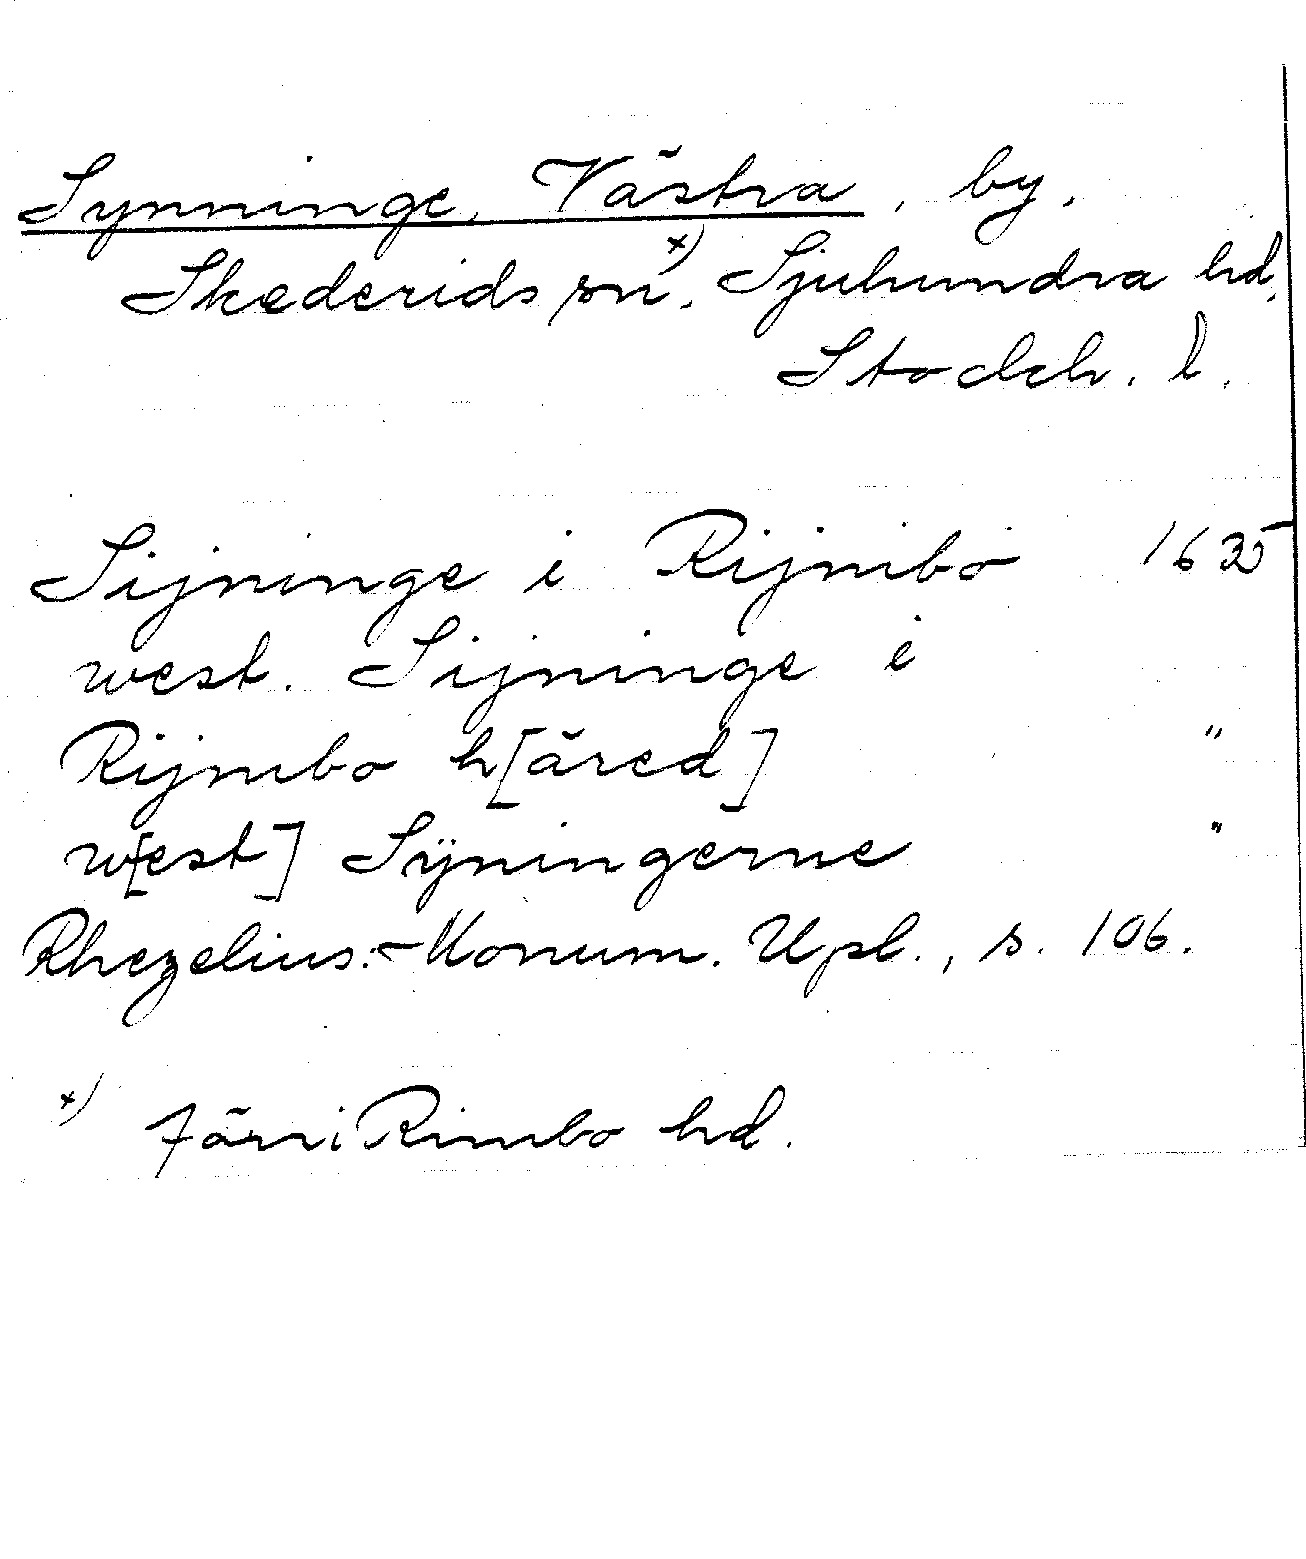 Synninge, Västra, by.
Skederids sn.x) Sjuhundra hd,
Stockh. l.
Sijninge i Rijmbo 1635
west. Sijninge i
Rijmbo h[äred] "
w[est] Sÿningerne "
Rhezelius: Monum. Upl., s. 106.
x) Förr i Rimbo hd.